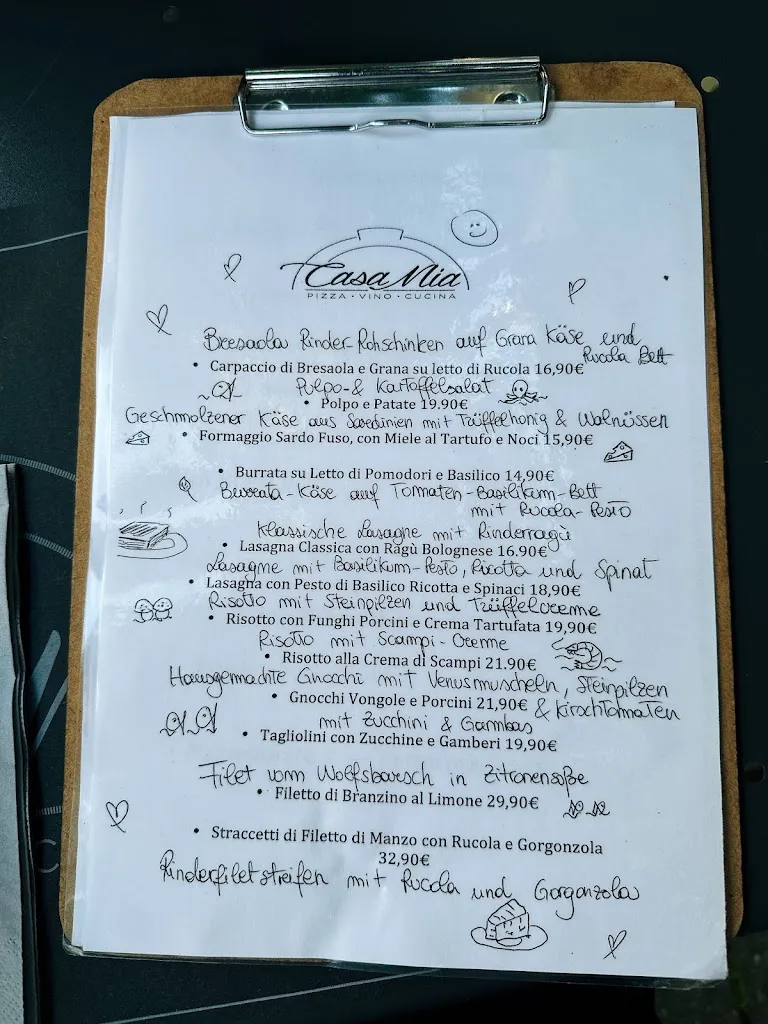 Casa Mia
PIZZA • VINO • CUCINA
Bresaola Rinder-Rohschinken auf Grana Käse und
Rucola Bett
• Carpaccio di Bresaola e Grana su letto di Rucola 16,90€
Pulpo- & Kartoffelsalat
• Polpo e Patate 19.90€
Geschmolzener Käse aus Sardinien mit Trüffelhonig & Walnüssen
• Formaggio Sardo Fuso, con Miele al Tartufo e Noci 15,90€
• Burrata su Letto di Pomodori e Basilico 14,90€
Burrata-Käse auf Tomaten-Basilikum-Bett
mit Rucola-Pesto
Klassische Lasagne mit Rinderragù
• Lasagna Classica con Ragù Bolognese 16.90€
Lasagne mit Basilikum-Pesto, Ricotta und Spinat
• Lasagna con Pesto di Basilico Ricotta e Spinaci 18,90€
Risotto mit Steinpilzen und Trüffelcreme
• Risotto con Funghi Porcini e Crema Tartufata 19,90€
Risotto mit Scampi-Creme
• Risotto alla Crema di Scampi 21.90€
Hausgemachte Gnocchi mit Venusmuscheln, Steinpilzen
• Gnocchi Vongole e Porcini 21,90€ & Kirschtomaten
mit Zucchini & Gambas
• Tagliolini con Zucchine e Gamberi 19,90€
Filet vom Wolfsbarsch in Zitronensoße
• Filetto di Branzino al Limone 29,90€
• Straccetti di Filetto di Manzo con Rucola e Gorgonzola
32,90€
Rinderfiletstreifen mit Rucola und Gorganzola